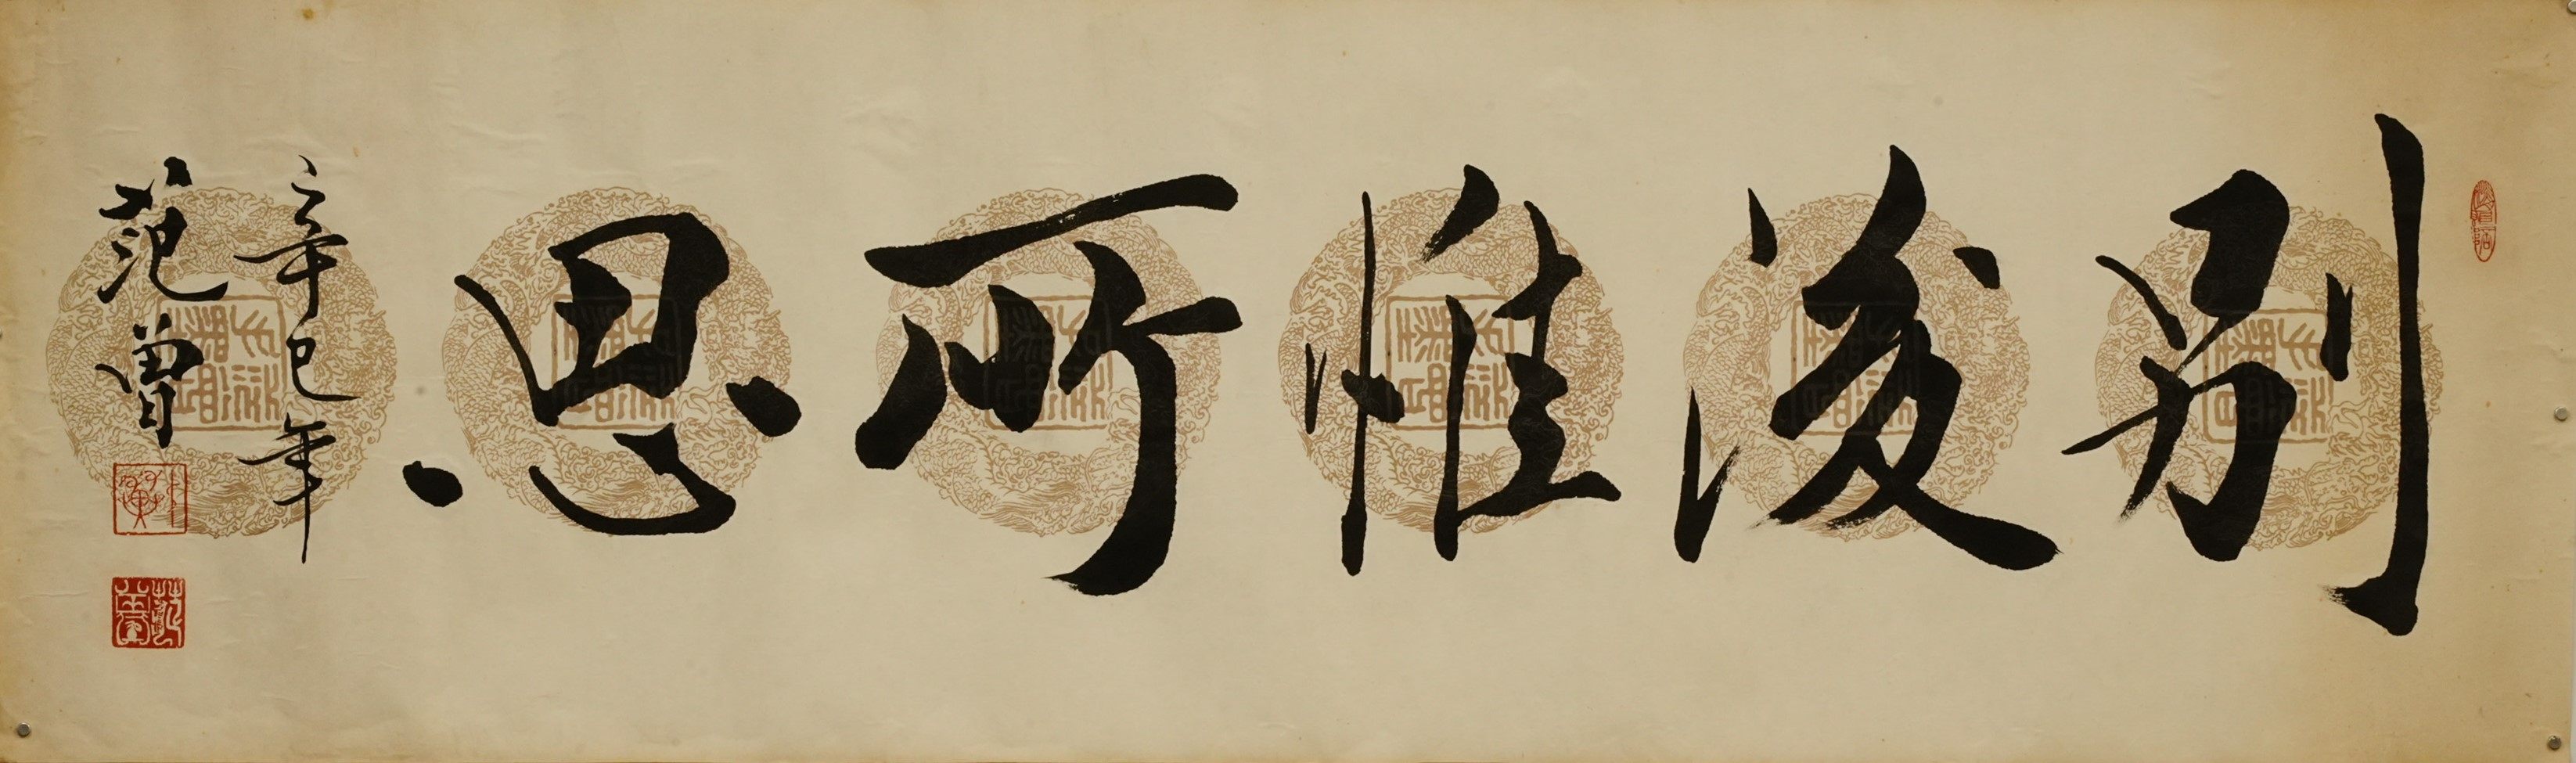 別後惟所思
辛巳年
范曾